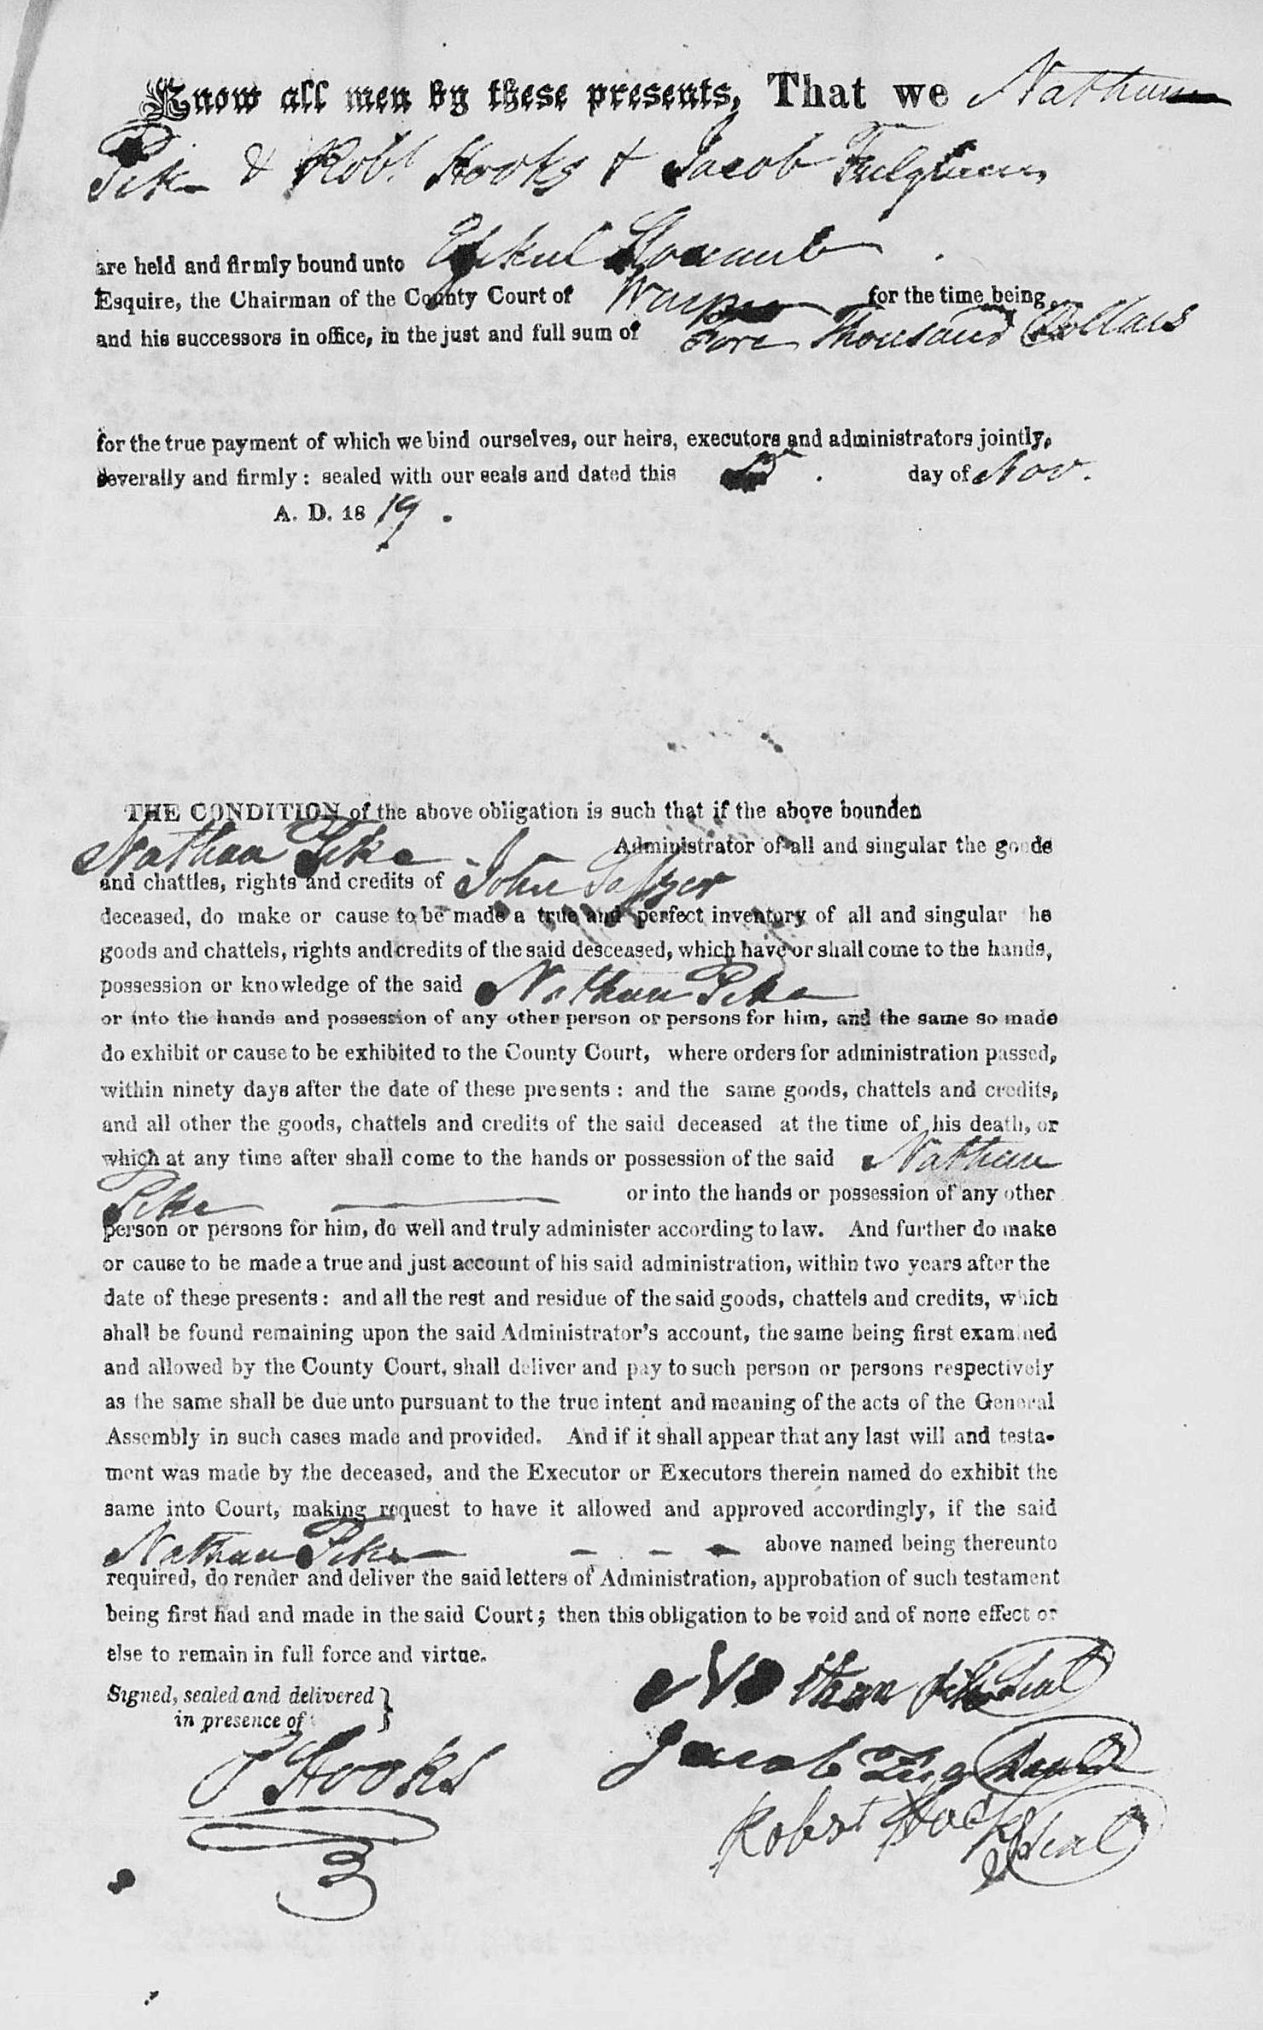 Know all men by these presents, That we Nathan
Pike & Robt Hooks & Jacob Fulghum
are held and firmly bound unto Slocumb
Esquire, the Chairman of the County Court of Wayne for the time being
and his successors in office, in the just and full sum of Thousand Dollars
for the true payment of which we bind ourselves, our heirs, executors and administrators jointly,
severally and firmly: sealed with our seals and dated this day of Nov.
A. D. 1819.
THE CONDITION of the above obligation is such that if the above bounden
Nathan Pike Administrator of all and singular the goods
and chattles, rights and credits of John
deceased, do make or cause to be made a true and perfect inventory of all and singular he
goods and chattels, rights and credits of the said desceased, which have or shall come to the hands,
possession or knowledge of the said Nathan Pike
or into the hands and possession of any other person or persons for him, and the same so made
do exhibit or cause to be exhibited to the County Court, where orders for administration passed,
within ninety days after the date of these presents: and the same goods, chattels and credits,
and all other the goods, chattels and credits of the said deceased at the time of his death, or
which at any time after shall come to the hands or possession of the said Nathan
Pike or into the hands or possession of any other
person or persons for him, do well and truly administer according to law. And further do make
or cause to be made a true and just account of his said administration, within two years after the
date of these presents: and all the rest and residue of the said goods, chattels and credits, which
shall be found remaining upon the said Administrator's account, the same being first examined
and allowed by the County Court, shall deliver and pay to such person or persons respectively
as the same shall be due unto pursuant to the true intent and meaning of the acts of the General
Assembly in such cases made and provided. And if it shall appear that any last will and testa-
ment was made by the deceased, and the Executor or Executors therein named do exhibit the
same into Court, making request to have it allowed and approved accordingly, if the said
Nathan Pike above named being thereunto
required, do render and deliver the said letters of Administration, approbation of such testament
being first had and made in the said Court; then this obligation to be void and of none effect or
else to remain in full force and virtue.
Signed, sealed and delivered
in presence of
P Hooks
Nathan Pike Seal
Jacob Seal
Robert Hooks Seal